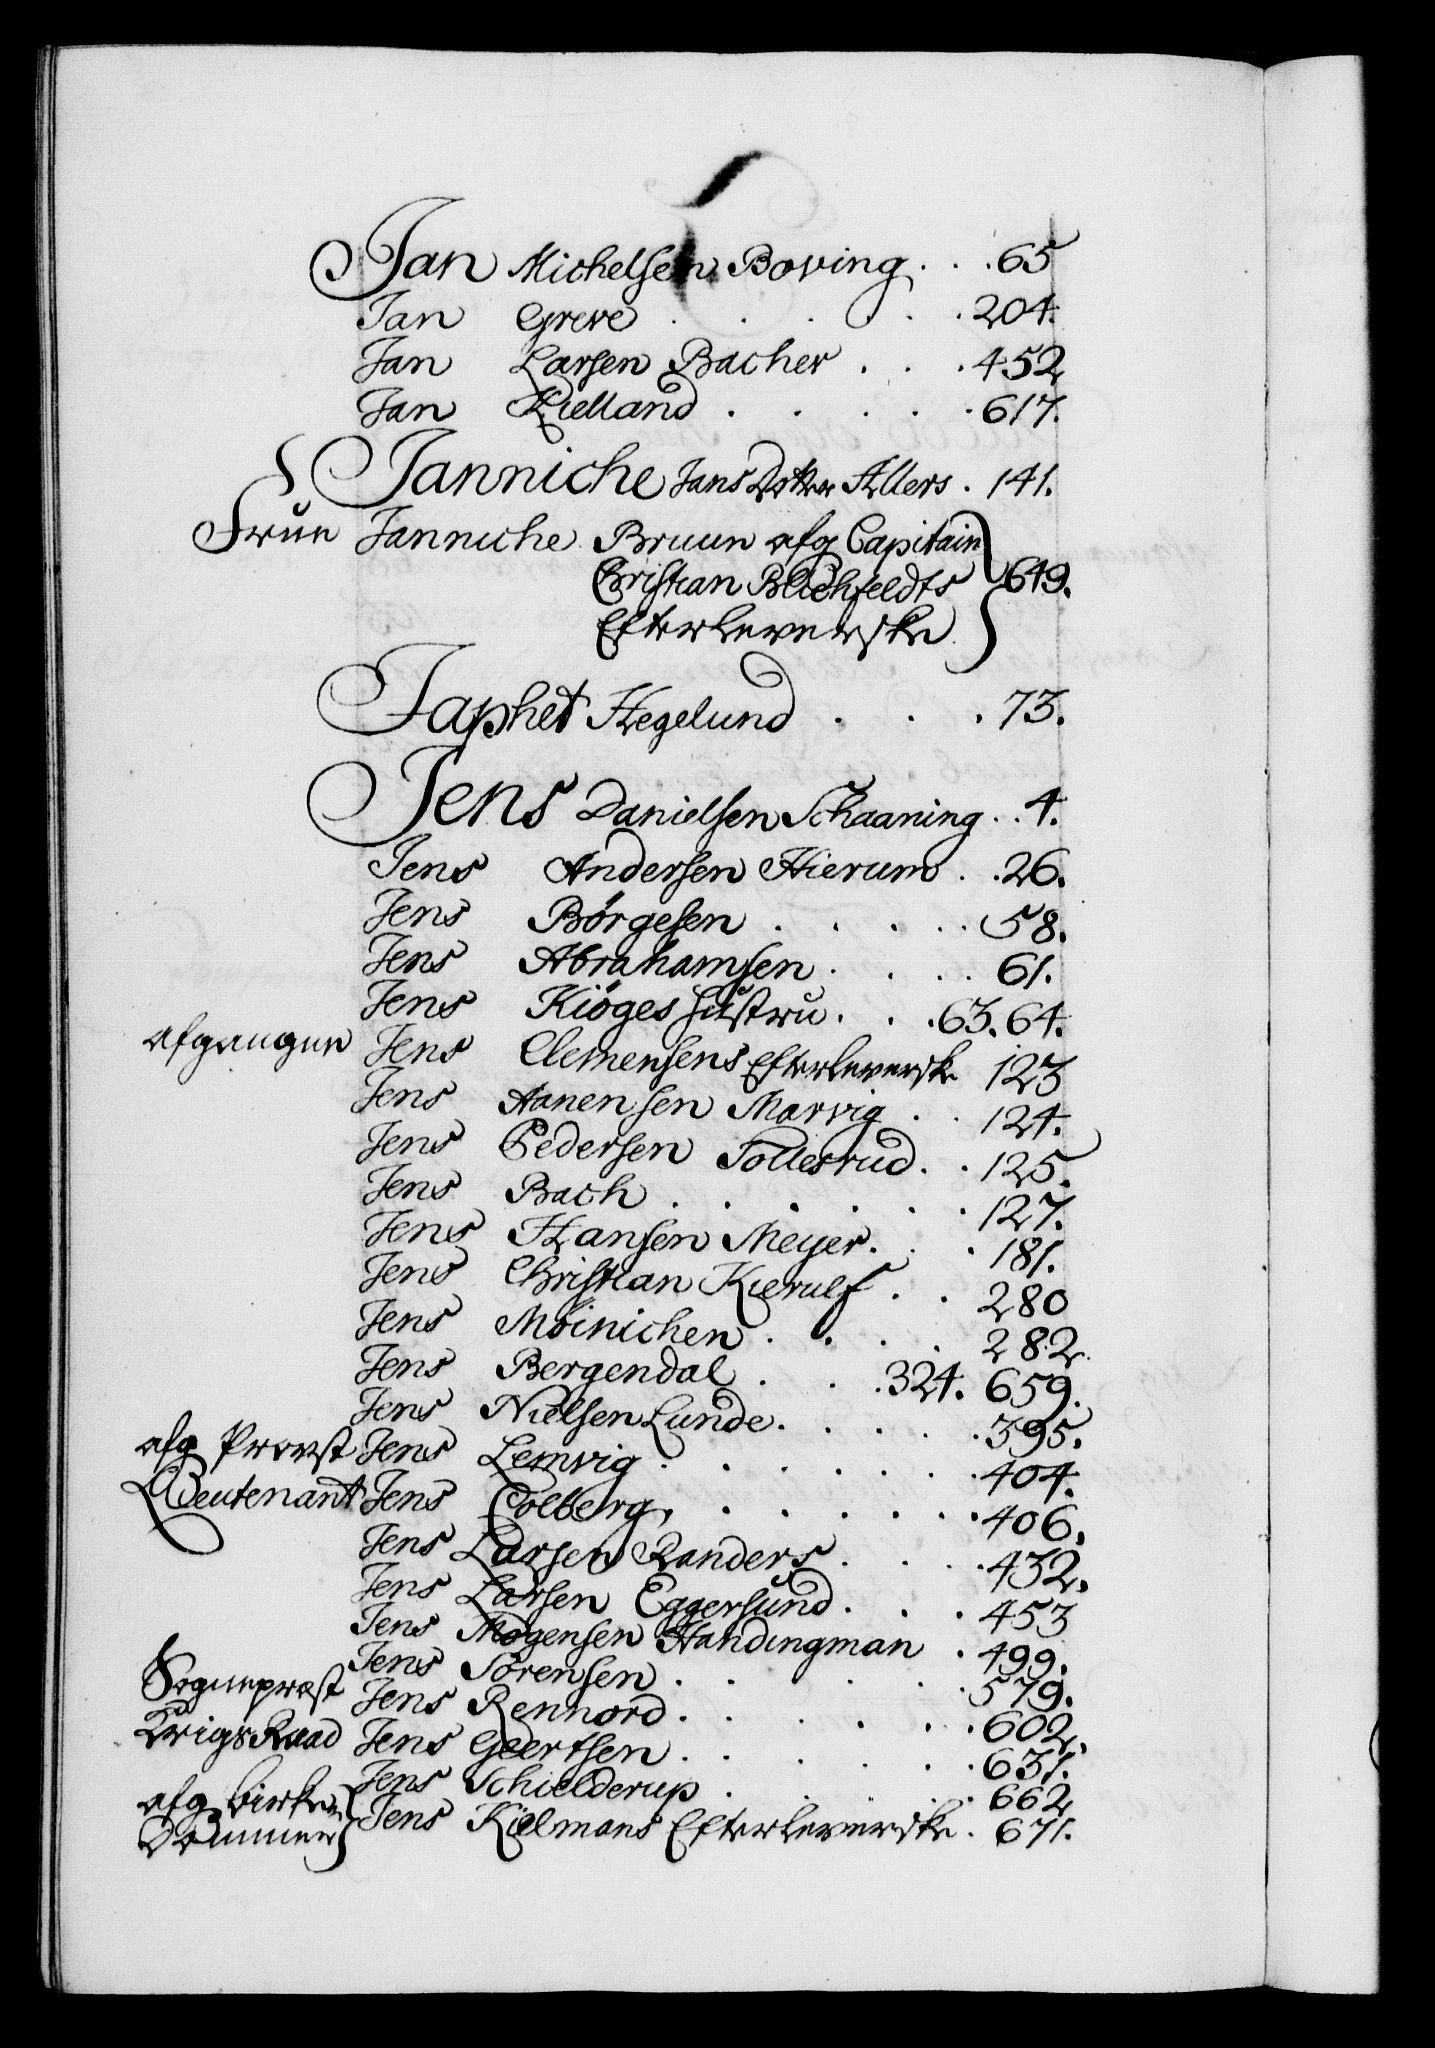 Jan Michelsen Boving . . . 65
Jan Greve . . . . . . 204.
Jan Larsen Bacher . . . 452
Jan Kielland . . . . . 617.
Janniche Jans Dotter Allers . 141.
Frue Janniche Bruun afg Capitain
Christian Blichfeldts 649.
Efterleverske
Japhet Hegelund . . . 73.
Jens Danielsen Schaaning . . 4.
Jens Andersen Hierum . . 26.
Jens Börgesen . . . . . 58.
Jens Abrahamsen . . . . 61.
Jens Kiöges Hustru . . . 63. 64.
afgangne Jens Clemensens Efterleverske 123
Jens Aanensen Marvig . . 124.
Jens Pedersen Tollesrud . . 125.
Jens Bach . . . . . . 127.
Jens Hansen Meyer . . . 181.
Jens Christian Kierulf . . 280
Jens Möinichen . . . . 282.
Jens Bergendal . . . 324. 659.
Jens Nielsen Lunde . . . . . 395.
afg Provst Jens Lemvig . . . . . . . 404.
Lieutenant Jens Colberg . . . . . . 406.
Jens Larsen Randers . . . . 432.
Jens Larsen Eggersund . . . 453
Jens Mogensen Handingman . 499.
Jens Sörensen . . . . . . 579.
Sogneprest Jens Rennord . . . . . . 602.
Krigs Raad Jens Geertsen . . . . . . 631.
Jens Schielderup . . . . . 662
afg birke Jens Kielmans Efterleverske . 671.
Dommer